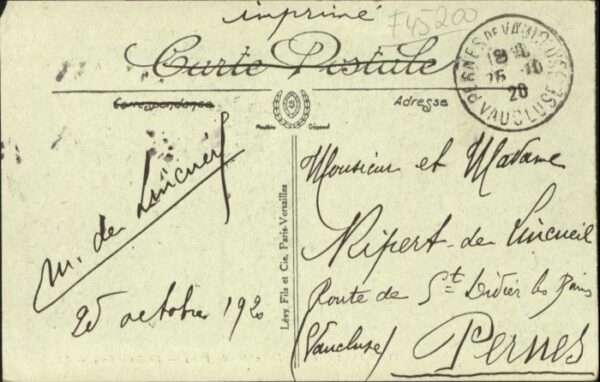 imprimé
F45200
Carte Postale
Correspondance
Adresse
PERNES DE VAUCLUSE
25-10
20
VAUCLUSE
Modèle Déposé
Lévy, Fils et Cie, Paris-Versailles
M. de Lincueil
25 octobre 1920
Monsieur et Madame
Ripert-de Lincueil
Route de St Didier les Bains
(Vaucluse) Pernes